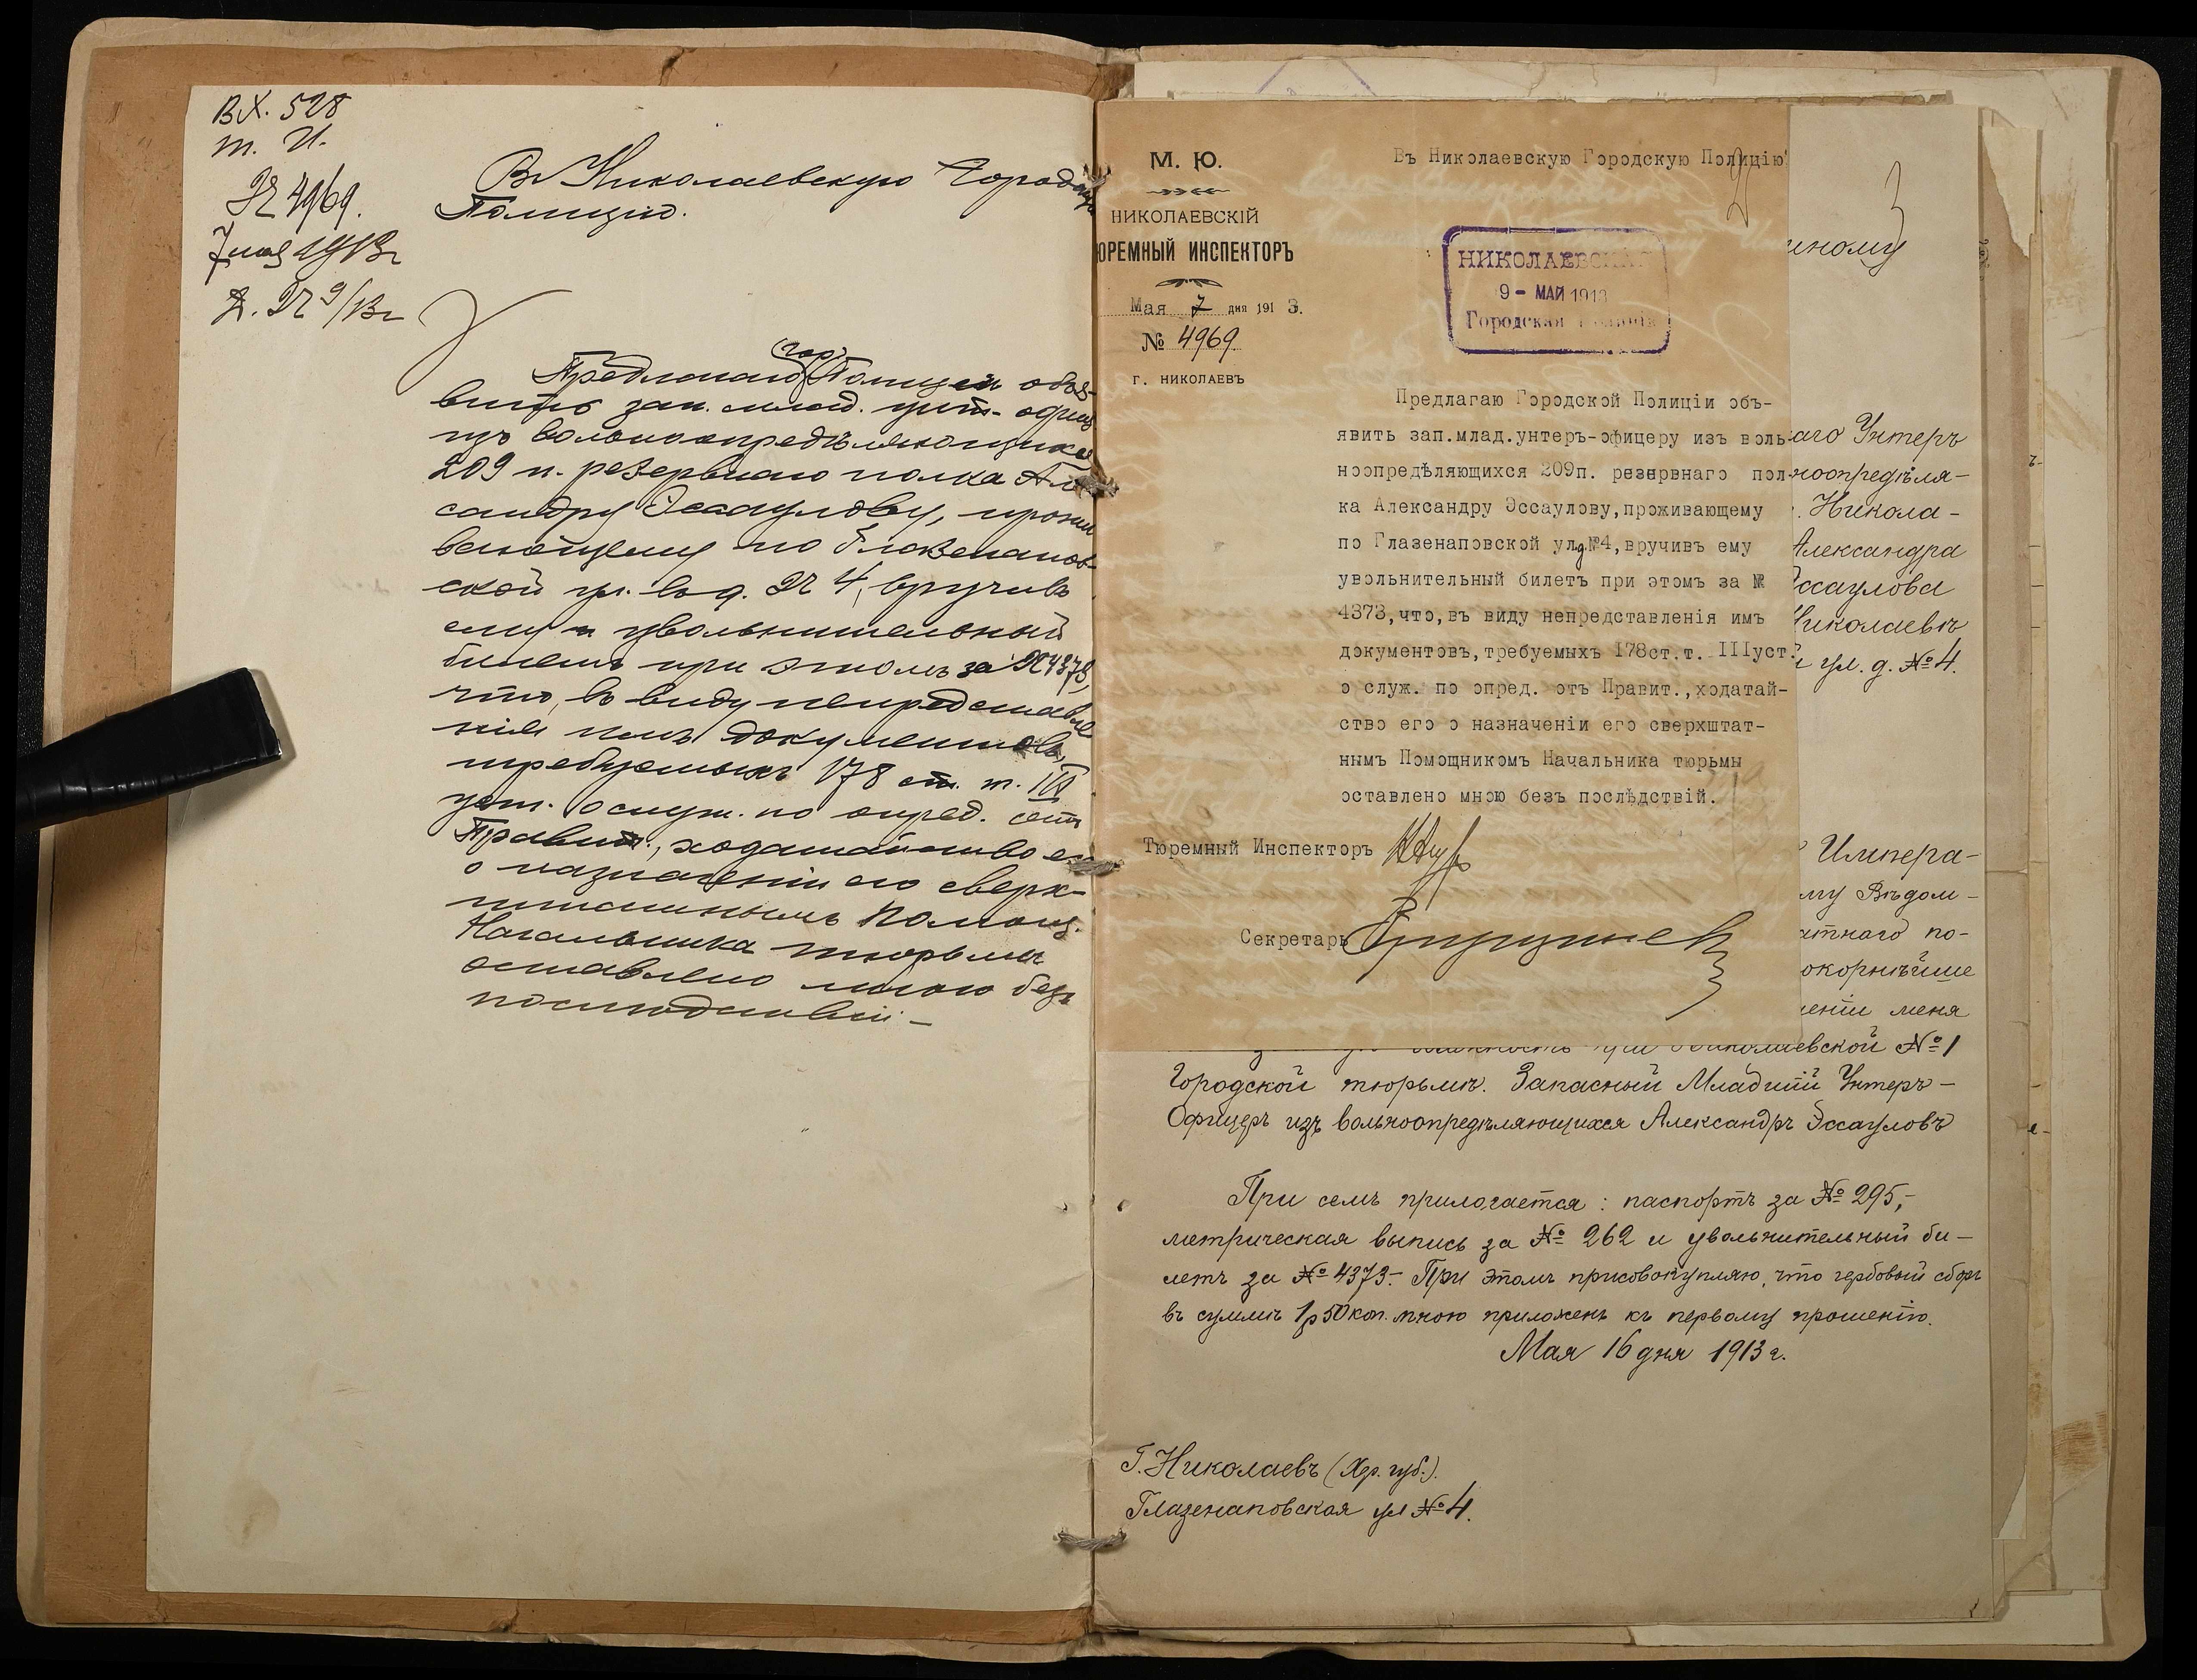 Вх. 528
т. И.
№ 4969.
7 мая 1913 г
Д. № 9/13 г
Въ Николаевскую Городскую
Полицію.
(Гор)
Предлагаю Полиціи объя-
вить зап. млад. унт.- офиц
изъ вольноопредѣляющихся
209 п. резервнаго полка Алек
сандру Эссаулову, прожи
вающему по Глазенапов-
ской ул. въ д. № 4, вручивъ
ему увольнительный
билетъ при этомъ за № 4373,
что, въ виду непредставле
нія имъ документовъ,
требуемыхъ 178 ст. т. III
уст. о служ. по опред. отъ
Правит., ходатайство его
о назначеніи его сверх-
штатнымъ Помощ.
Начальника тюрьмы
оставлено мною безъ
послѣдствій –
М. Ю.
НИКОЛАЕВСКІЙ
ЮРЕМНЫЙ ИНСПЕКТОРЪ
Мая 7 дня 1913.
№ 4969.
г. НИКОЛАЕВЪ
Въ Николаевскую Городскую Полицію
2
НИКОЛАЕВСКАЯ
9 – МАЙ 1913
Городская Полиція
Предлагаю Городской Полиціи объ-
явить зап.млад.унтеръ-офицеру изъ воль-
ноопредѣляющихся 209п. резервнаго пол-
ка Александру Эссаулову,проживающему
по Глазенаповской ул.д№4,вручивъ ему
увольнительный билетъ при этомъ за №
4373,что,въ виду непредставленія имъ
документовъ,требуемыхъ 178ст.т. IIIуст.
о служ. по опред. отъ Правит.,ходатай-
ство его о назначеніи его сверхштат-
нымъ Помощникомъ Начальника тюрьмы
оставлено мною безъ послѣдствій.
Тюремный Инспекторъ
Секретарь
3
иному
аго Унтеръ
ноопредѣля-
. Никола-
Александра
Эссаулова
Николаевъ
ул. д. №4.
Импера-
му Вѣдом-
атнаго по-
окорнѣйше
еніи меня
должность при Николаевской №1
Городской тюрьмѣ. Запасный Младшій Унтеръ-
Офицеръ изъ вольноопредѣляющихся Александръ Эссауловъ
При семъ прилагается: паспортъ за № 295,-
метрическая выпись за № 262 и увольнительный би-
летъ за № 4373.- При этомъ присовокупляю, что гербовый сборъ
въ суммѣ 1р50коп. мною приложенъ къ первому прошенію.
Мая 16 дня 1913 г.
Г. Николаевъ (Хер. губ.).
Глазенаповская ул №4.